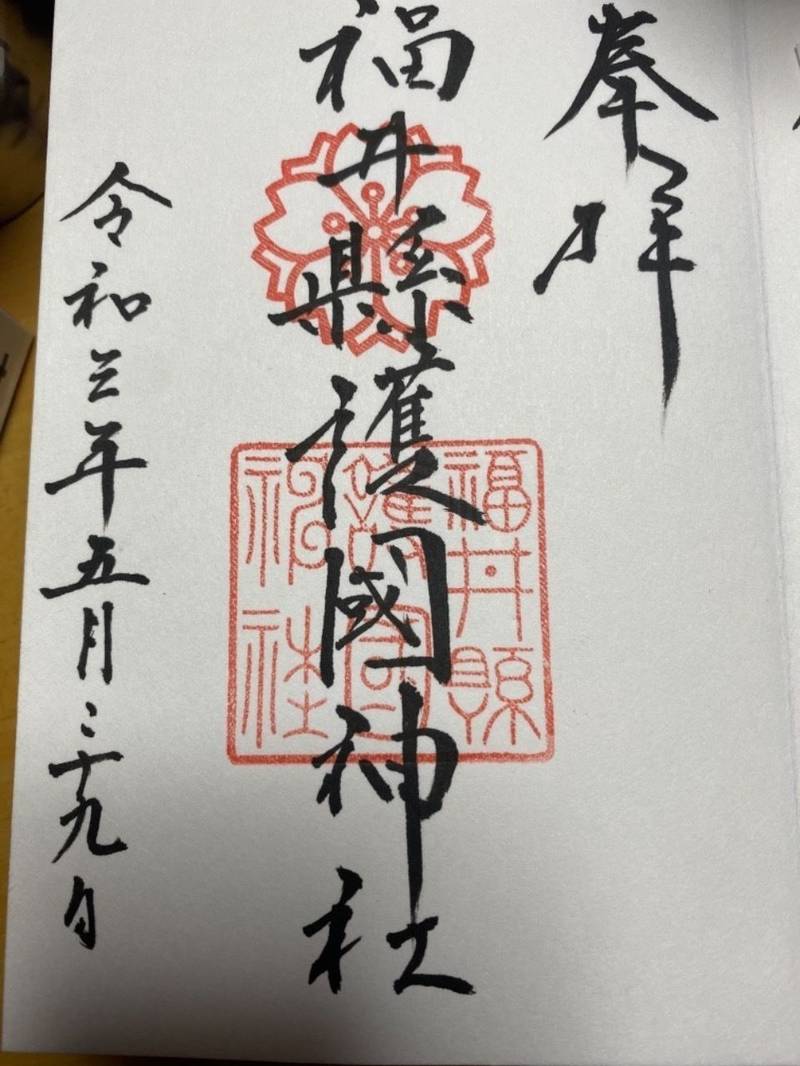 奉拝
福井縣護國神社
福井縣
護國
神社
令和三年五月二十九日